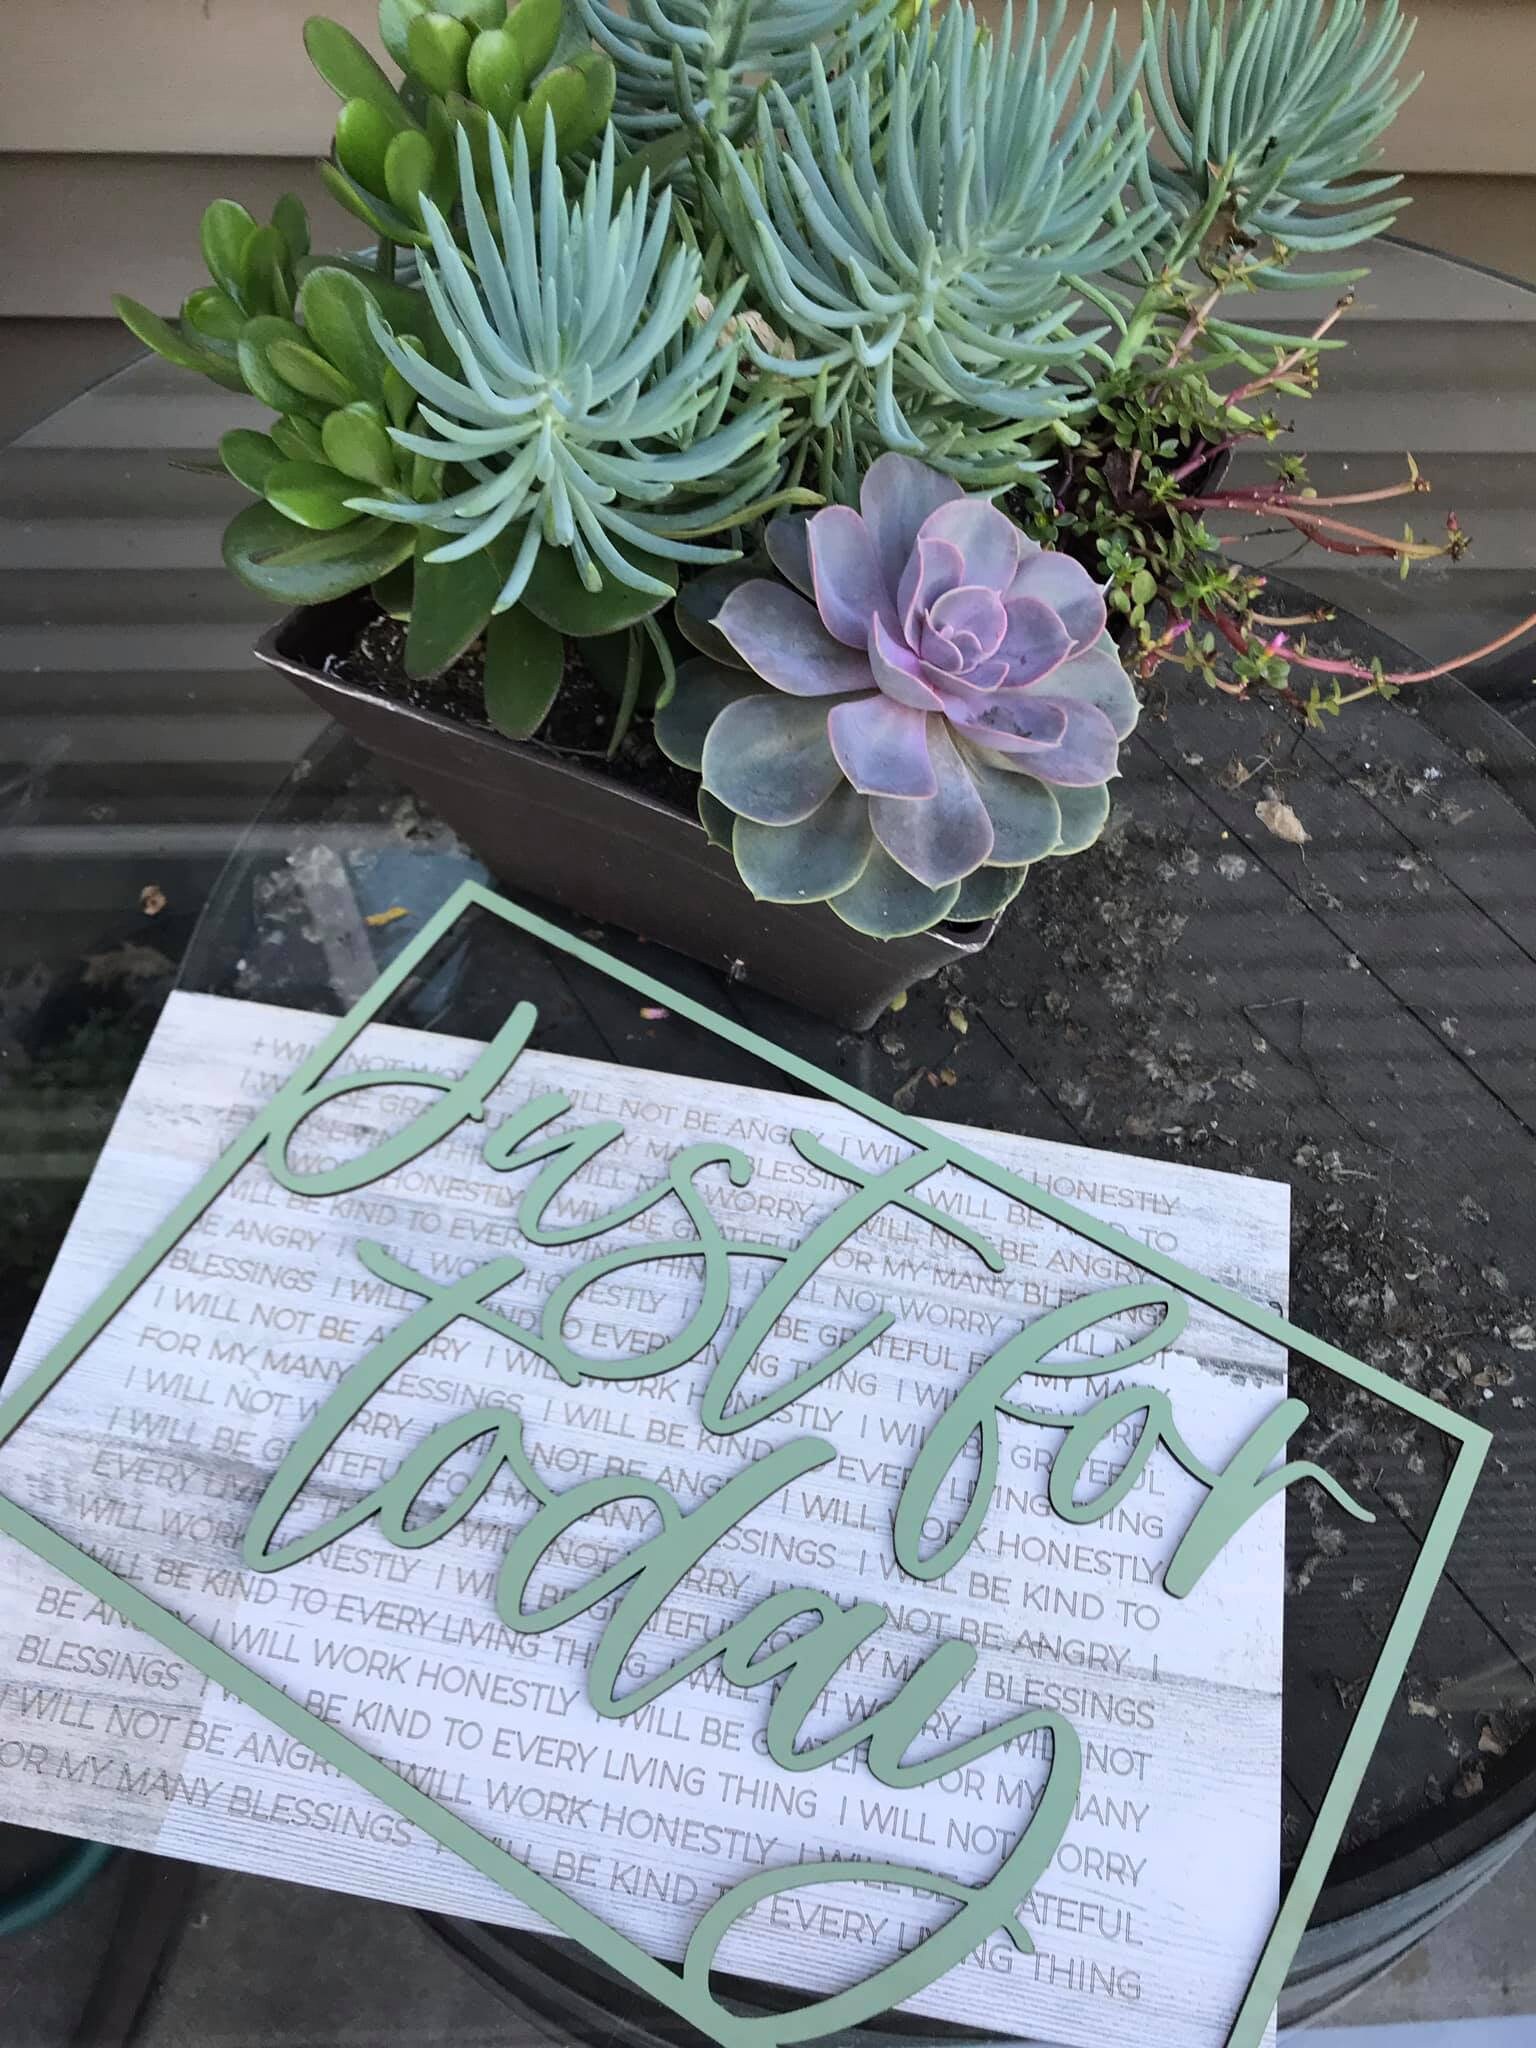 Just for
today
I WILL NOT WORRY I WILL NOT BE ANGRY I WILL WORK HONESTLY
I WILL BE GRATEFUL FOR MY MANY BLESSINGS I WILL BE KIND TO
EVERY LIVING THING I WILL NOT WORRY I WILL NOT BE ANGRY I
WILL WORK HONESTLY I WILL BE GRATEFUL FOR MY MANY BLESSINGS
I WILL BE KIND TO EVERY LIVING THING I WILL NOT WORRY I WILL NOT
BE ANGRY I WILL WORK HONESTLY I WILL BE GRATEFUL FOR MY MANY
BLESSINGS I WILL BE KIND TO EVERY LIVING THING I WILL NOT WORRY
I WILL NOT BE ANGRY I WILL WORK HONESTLY I WILL BE GRATEFUL
FOR MY MANY BLESSINGS I WILL BE KIND TO EVERY LIVING THING
I WILL NOT WORRY I WILL NOT BE ANGRY I WILL WORK HONESTLY
I WILL BE GRATEFUL FOR MY MANY BLESSINGS I WILL BE KIND TO
EVERY LIVING THING I WILL NOT WORRY I WILL NOT BE ANGRY I
WILL WORK HONESTLY I WILL BE GRATEFUL FOR MY MANY BLESSINGS
I WILL BE KIND TO EVERY LIVING THING I WILL NOT WORRY I WILL NOT
BE ANGRY I WILL WORK HONESTLY I WILL BE GRATEFUL FOR MY MANY
BLESSINGS I WILL BE KIND TO EVERY LIVING THING I WILL NOT WORRY
I WILL NOT BE ANGRY I WILL WORK HONESTLY I WILL BE GRATEFUL
FOR MY MANY BLESSINGS I WILL BE KIND TO EVERY LIVING THING